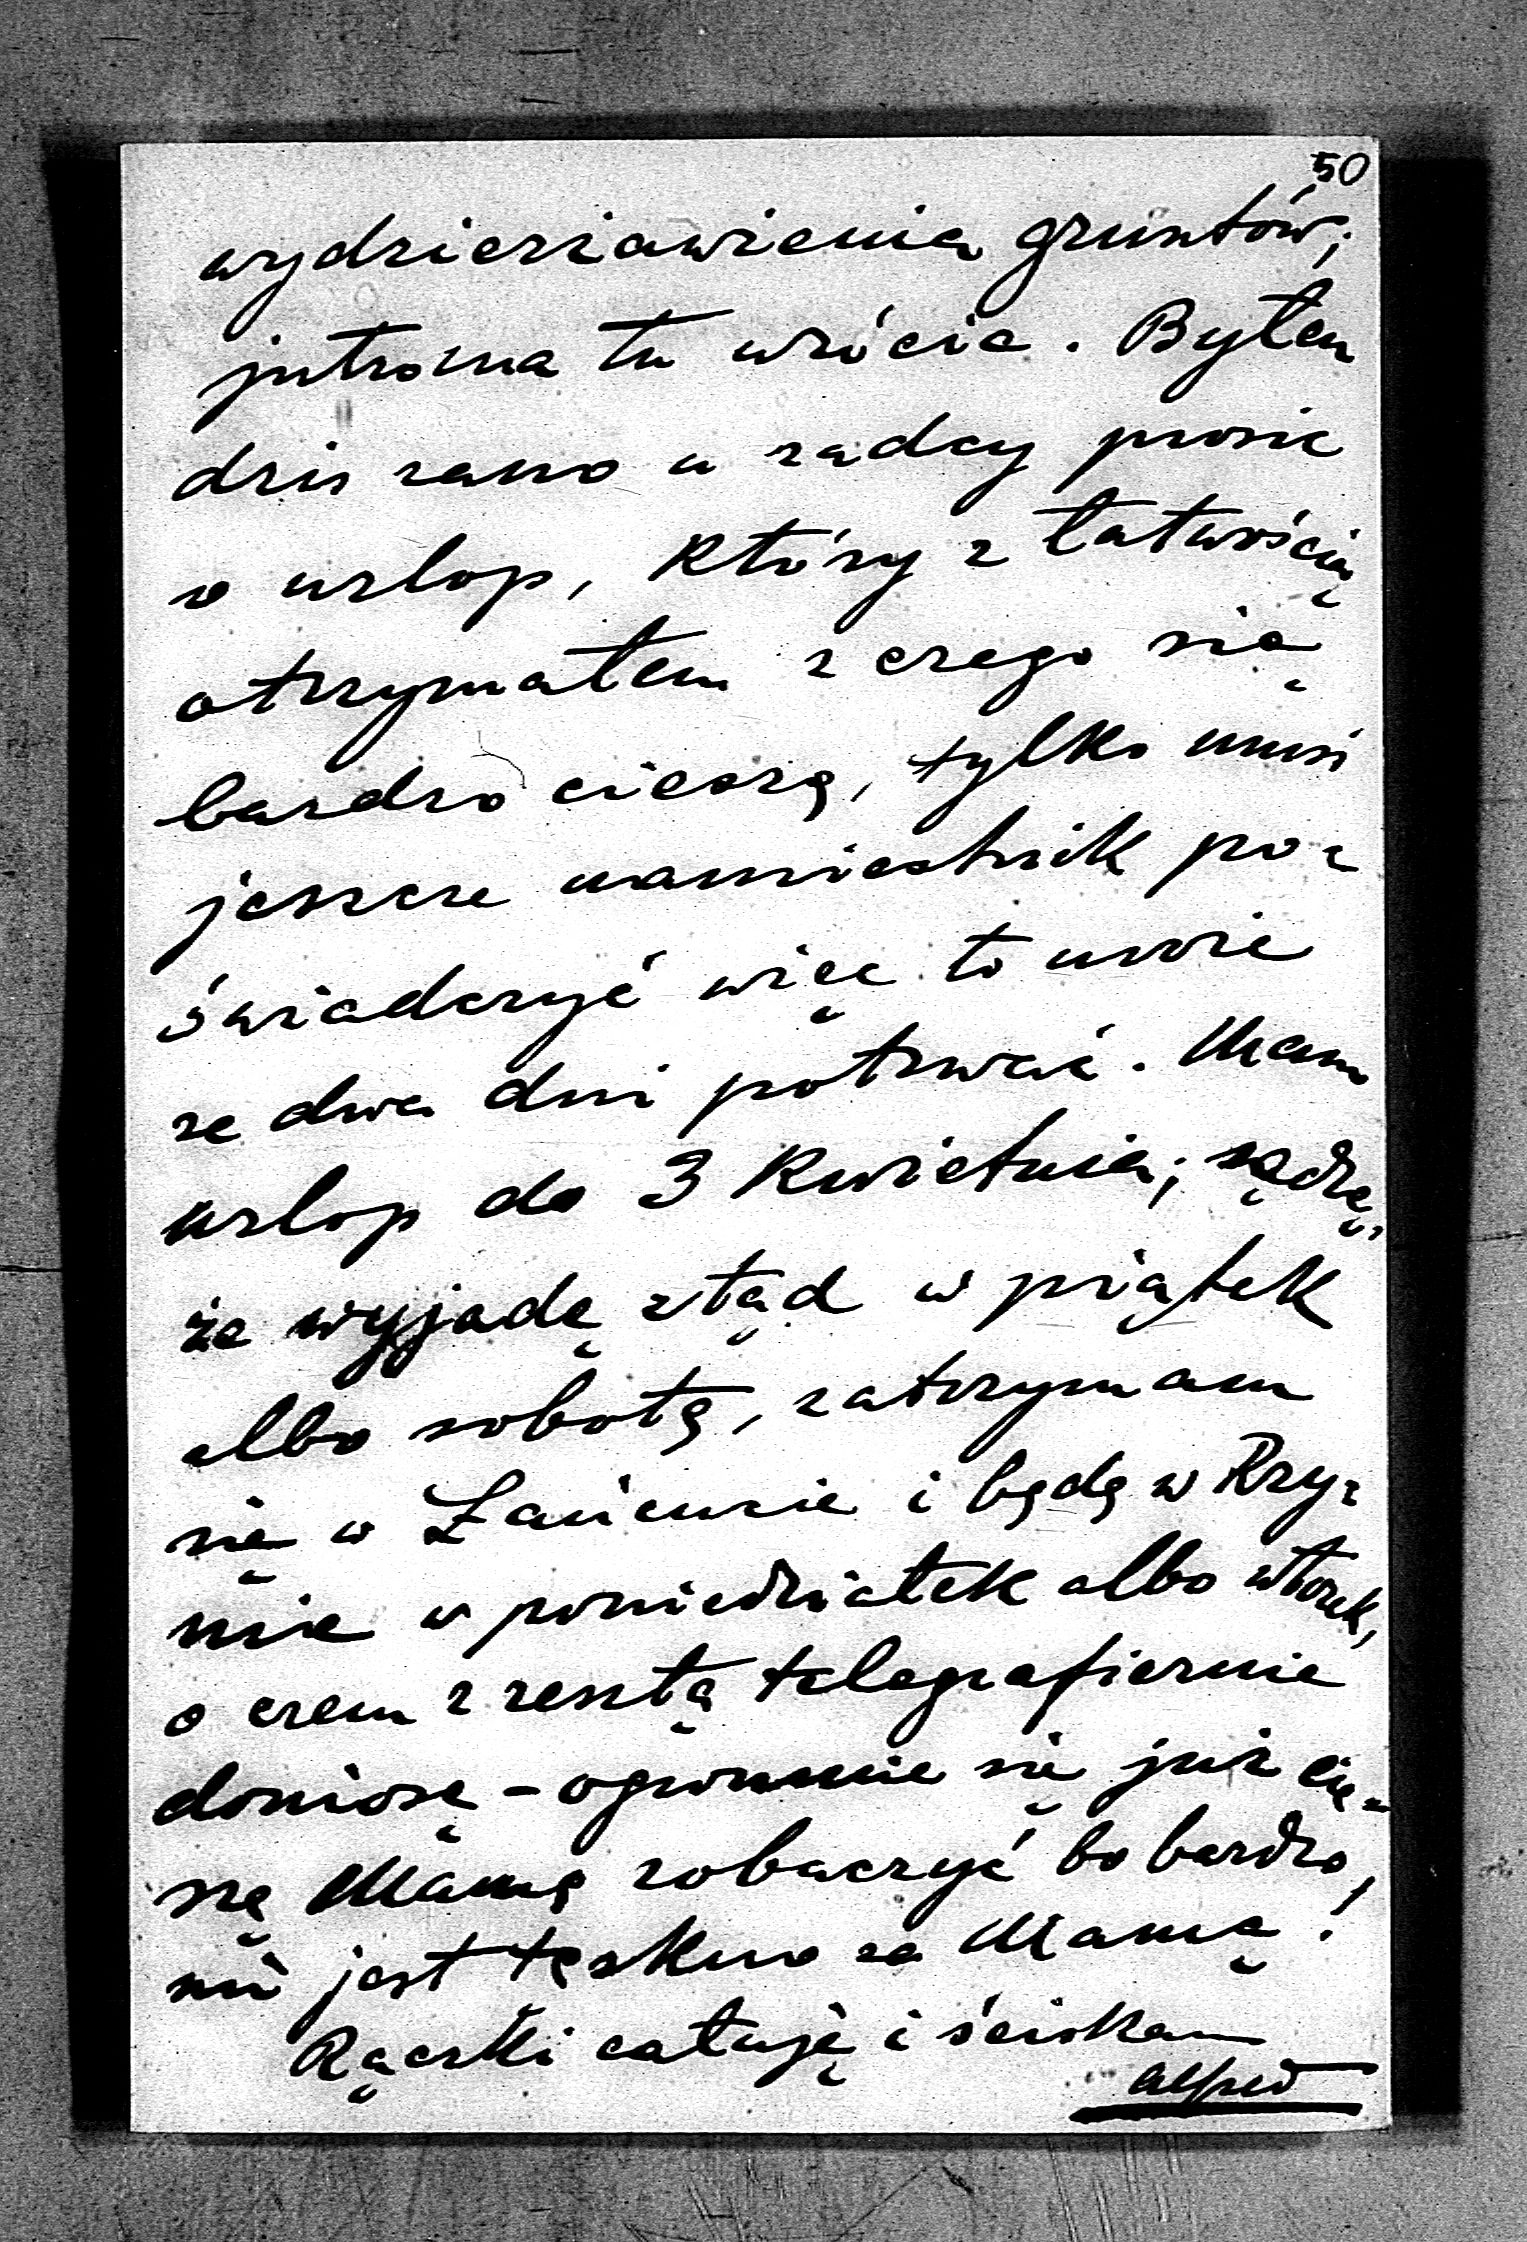 50
wydzierżawienia gruntów;
jutro ma tu wrócić. Byłem
dziś rano u radcy prosić
o urlop, który z łatwością
otrzymałem z czego się
bardzo cieszę, tylko musi
jeszcze namiestnik po-
świadczyć więc to może
ze dwa dni potrwać. Mam
urlop do 3 kwietnia; sądzę,
że wyjadę ztąd w piątek
albo sobotę, zatrzymam
się w Łańcucie i będę w Rzy-
mie w poniedziałek albo wtorek,
o czem z resztą telegraficznie
doniosę – ogromnie się już cie-
szę Mamę zobaczyć bo bardzo
mi jest tęskno za Mamą!
Rączki całuję i ściskam
Alfred